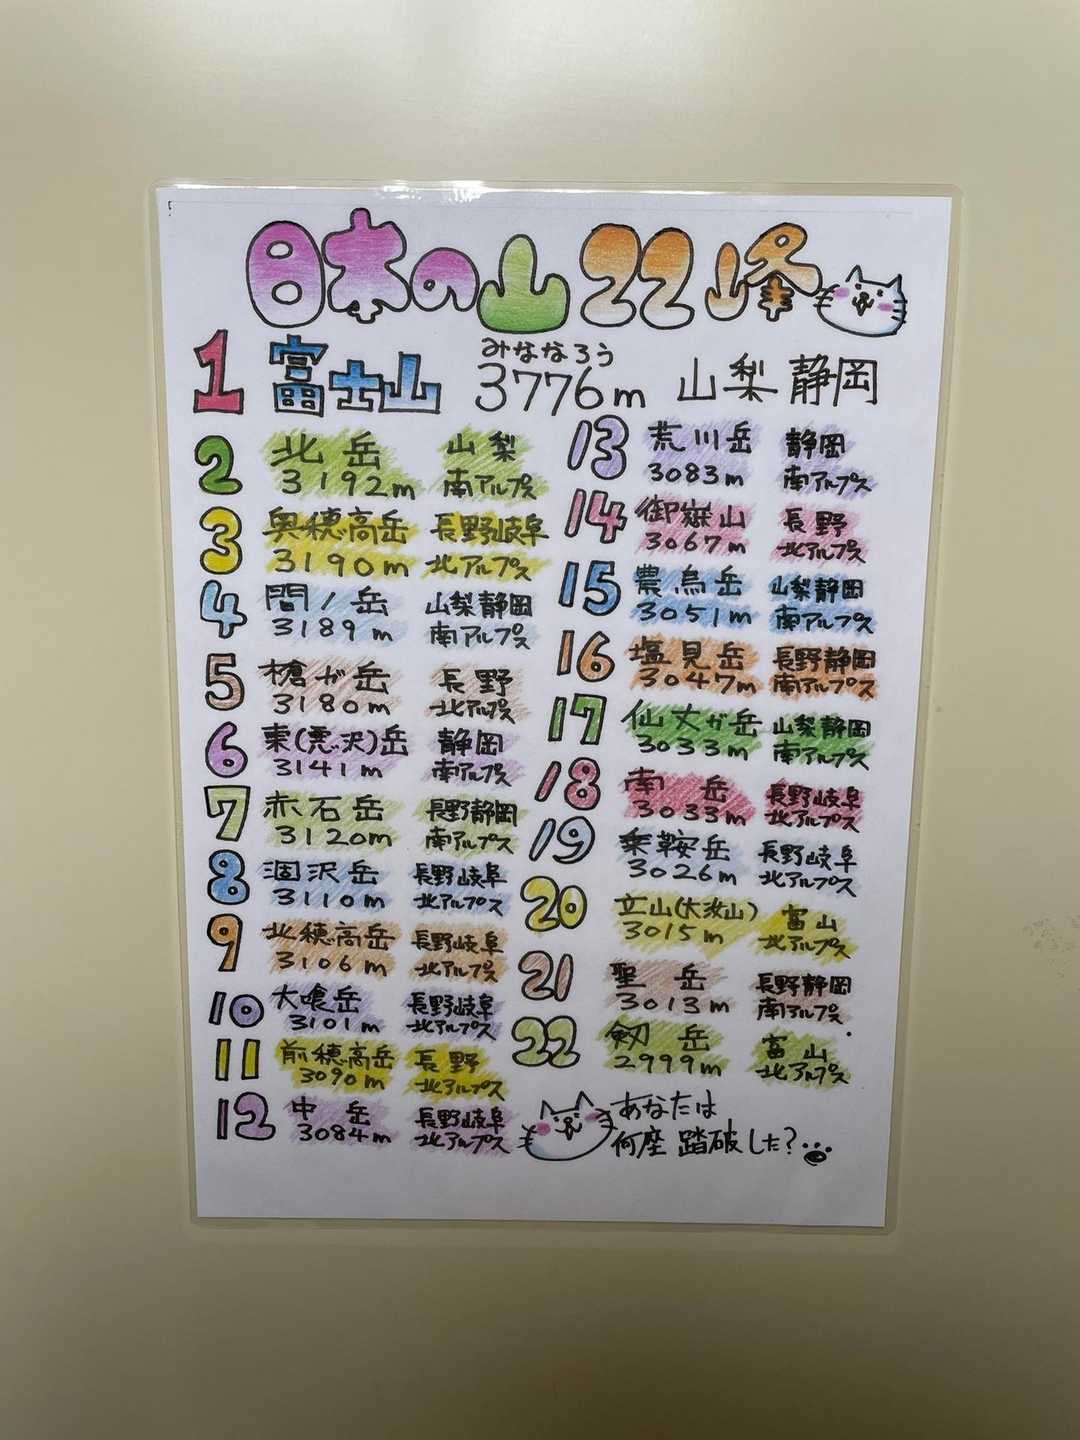 日本の山22峰
1 富士山 みななろう 3776m 山梨 静岡
2 北岳 山梨
3192m 南アルプス
3 奥穂高岳 長野岐阜
3190m 北アルプス
4 間ノ岳 山梨静岡
3189m 南アルプス
5 槍が岳 長野
3180m 北アルプス
6 東(悪沢)岳 静岡
3141m 南アルプス
7 赤石岳 長野静岡
3120m 南アルプス
8 涸沢岳 長野岐阜
3110m 北アルプス
9 北穂高岳 長野岐阜
3106m 北アルプス
10 大喰岳 長野岐阜
3101m 北アルプス
11 前穂高岳 長野
3090m 北アルプス
12 中岳 長野岐阜
3084m 北アルプス
13 荒川岳 静岡
3083m 南アルプス
14 御嶽山 長野
3067m 北アルプス
15 農鳥岳 山梨静岡
3051m 南アルプス
16 塩見岳 長野静岡
3047m 南アルプス
17 仙丈が岳 山梨静岡
3033m 南アルプス
18 南岳 長野岐阜
3033m 北アルプス
19 乗鞍岳 長野岐阜
3026m 北アルプス
20 立山(大汝山) 富山
3015m 北アルプス
21 聖岳 長野静岡
3013m 南アルプス
22 剱岳 富山
2999m 北アルプス
あなたは
何座 踏破した?